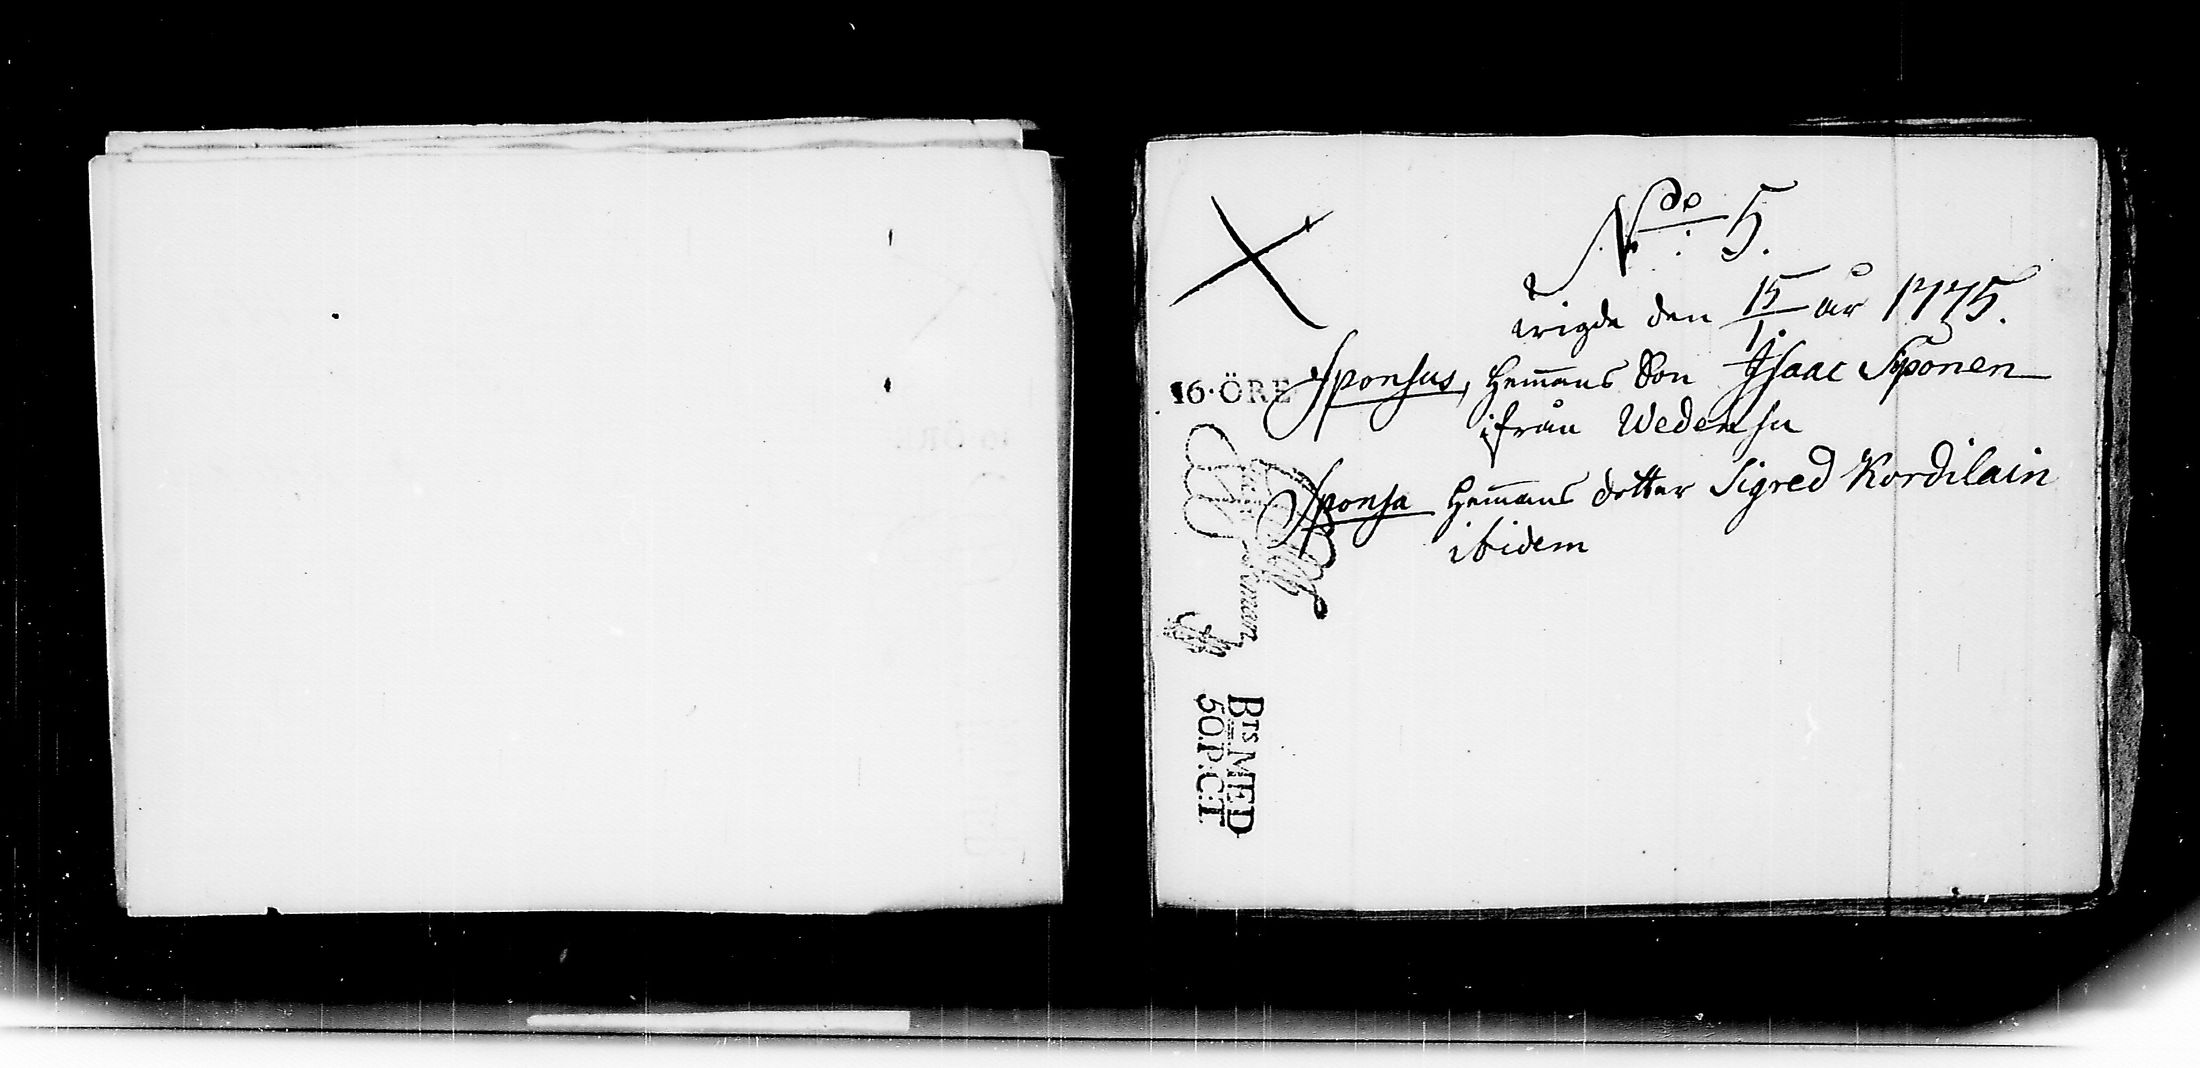 No 5.
wigde den 15/1. år 1775.
Sponsus, Hem̄ans Son Isaac Siponen
ifrån Wedensu
Sponsa Hem̄ans dotter Sigred Kordilain
ibidem
16·ÖRE
BTS MED
50.P:C:T